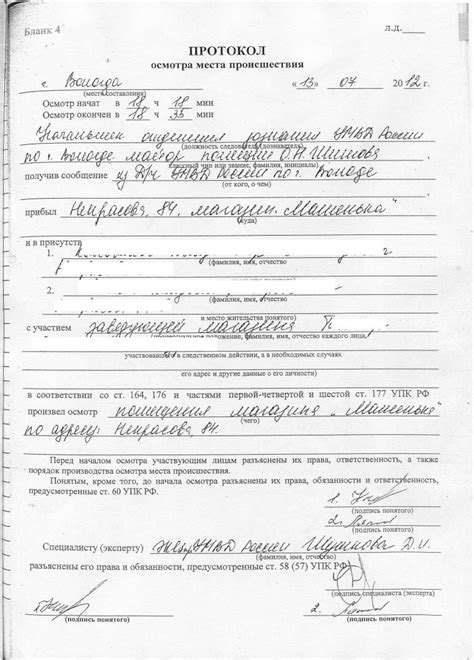 Бланк 4
Л.Д.____
ПРОТОКОЛ
осмотра места происшествия
г. Вологда «13» 07 2012г.
(место составления)
Осмотр начат в 18 ч 18 мин
Осмотр окончен в 18 ч 33 мин
Начальник отделения дознания УМВД России
(должность следователя (дознавателя),
по г. Вологде майор полиции О.Н. Шишова
классный чин или звание, фамилия, инициалы)
получив сообщение из Д/ч УМВД России по г. Вологде
(от кого, о чем)
прибыл Некрасова, 84, магазин „Машенька"
(куда)
и в присутств
1.
(фамилия, имя, отчество
2.
и место жительства понятого)
с участием заведующей магазина П
(процессуальное положение, фамилия, имя, отчество каждого лица,
участвовавшего в следственном действии, а в необходимых случаях
его адрес и другие данные о его личности)
в соответствии со ст. 164, 176 и частями первой-четвертой и шестой ст. 177 УПК РФ
произвел осмотр помещения магазина „Машенька"
(чего)
по адресу: Некрасова, 84.
Перед началом осмотра участвующим лицам разъяснены их права, ответственность, а также
порядок производства осмотра места происшествия.
Понятым, кроме того, до начала осмотра разъяснены их права, обязанности и ответственность,
предусмотренные ст. 60 УПК РФ.
1.
(подпись понятого)
2.
(подпись понятого)
Специалисту (эксперту) УМВД России Д.И.
(фамилия, имя, отчество)
разъяснены его права и обязанности, предусмотренные ст. 58 (57) УПК РФ
(подпись специалиста (эксперта)
1.
2.
(подпись понятого)
(подпись понятого)